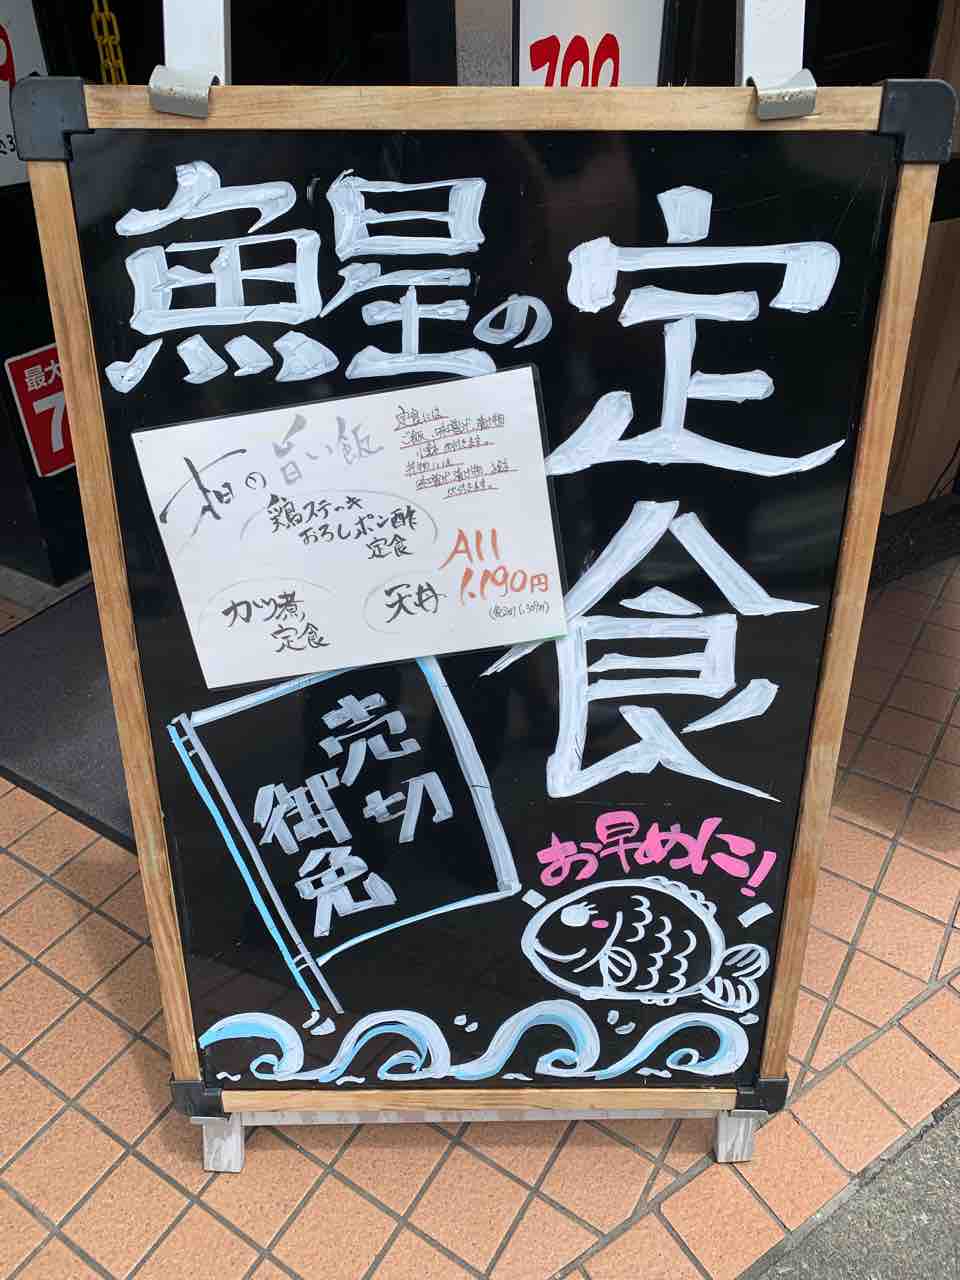 鯹の
定食
旨い飯
定食には
ご飯、味噌汁、漬け物
小鉢 付きます。
丼物には
味噌汁、漬け物、小鉢
付きます。
鶏ステーキ
おろしポン酢
定食
カツ煮
定食
天丼
All
1,190円
(税込み1,309円)
売切
御免
お早めに!
700
最大
7